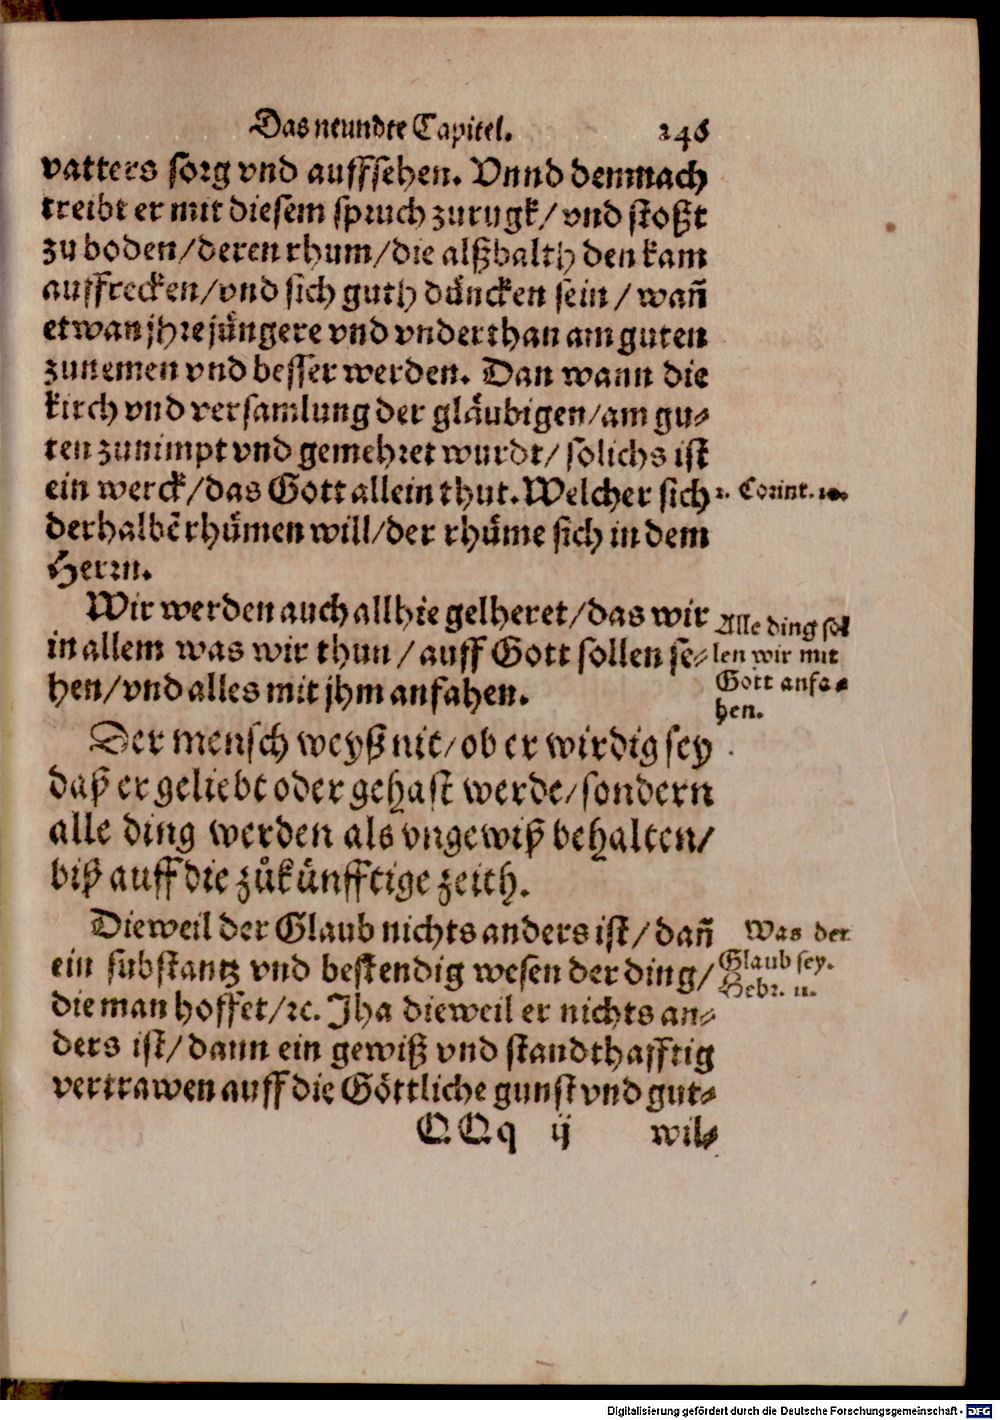 Das neundte Capitel. 246
vatters sorg vnd auffsehen. Vnnd demnach
treibt er mit diesem spruch zurugk/ vnd stoßt
zu boden/ deren rhum/ die alßbalth den kam
auffrecken/ vnd sich guth důncken sein/ wañ
etwan jhre jůngere vnd vnderthan am guten
zunemen vnd besser werden. Dan wann die
kirch vnd versamlung der glåubigen/ am gu-
ten zunimpt vnd gemehret wurdt/ solichs ist
ein werck/ das Gott allein thut. Welcher sich
1. Corint. 10.
derhalbẽ rhůmen will/ der rhůme sich in dem
Herrn.
Wir werden auch allhie gelheret/ das wir
in allem was wir thun/ auff Gott sollen se-
hen/ vnd alles mit jhm anfahen.
Alle ding sol
len wir mit
Gott anfa-
hen.
Der mensch weyß nit/ ob er wirdig sey
daß er geliebt oder gehast werde/ sondern
alle ding werden als vngewiß behalten/
biß auff die zůkünfftige zeith.
Dieweil der Glaub nichts anders ist/ dañ
ein substantz vnd bestendig wesen der ding/
die man hoffet/ ꝛc. Jha dieweil er nichts an-
ders ist/ dann ein gewiß vnd standthafftig
vertrawen auff die Göttliche gunst vnd gut-
Was der
Glaub sey.
Hebr. 11.
QQq ij wil-
Digitalisierung gefördert durch die Deutsche Forschungsgemeinschaft - DFG